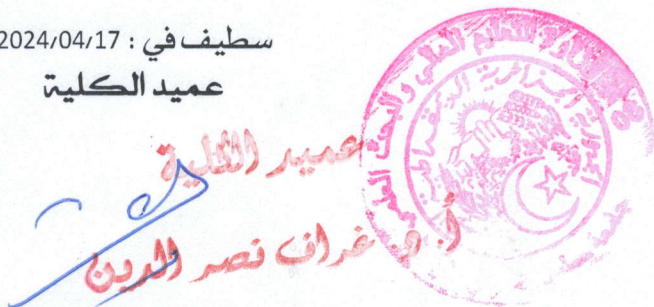 سطيف في : 2024/04/17
عميد الكلية
عميد الكلية
أ.د. غراف نصر الدين
وزارة التعليم العالي والبحث العلمي
الجمهورية الجزائرية الديمقراطية